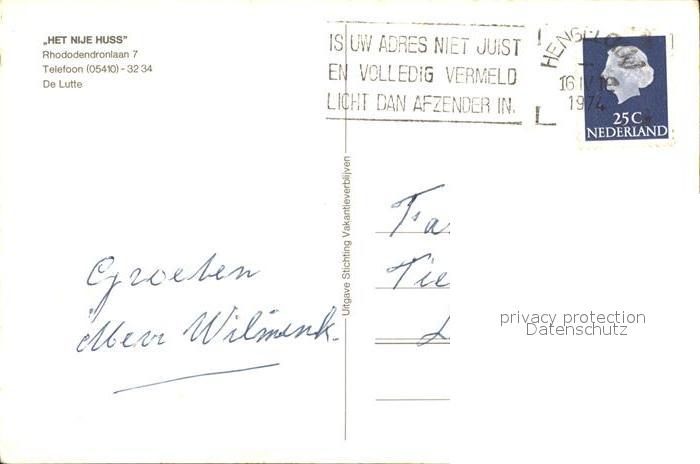 „HET NIJE HUSS"
Rhododendronlaan 7
Telefoon (05410) - 32 34
De Lutte
IS UW ADRES NIET JUIST
EN VOLLEDIG VERMELD
LICHT DAN AFZENDER IN.
HENGELO
16 IV
1974
25 C
NEDERLAND
Uitgave Stichting Vakantieverblijven
Groeten
Mevr Wilmink.
Fa.
Tie
privacy protection
Datenschutz